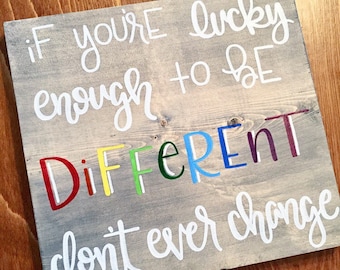 if you're lucky
enough to BE
DiFFeRENT
don't ever change